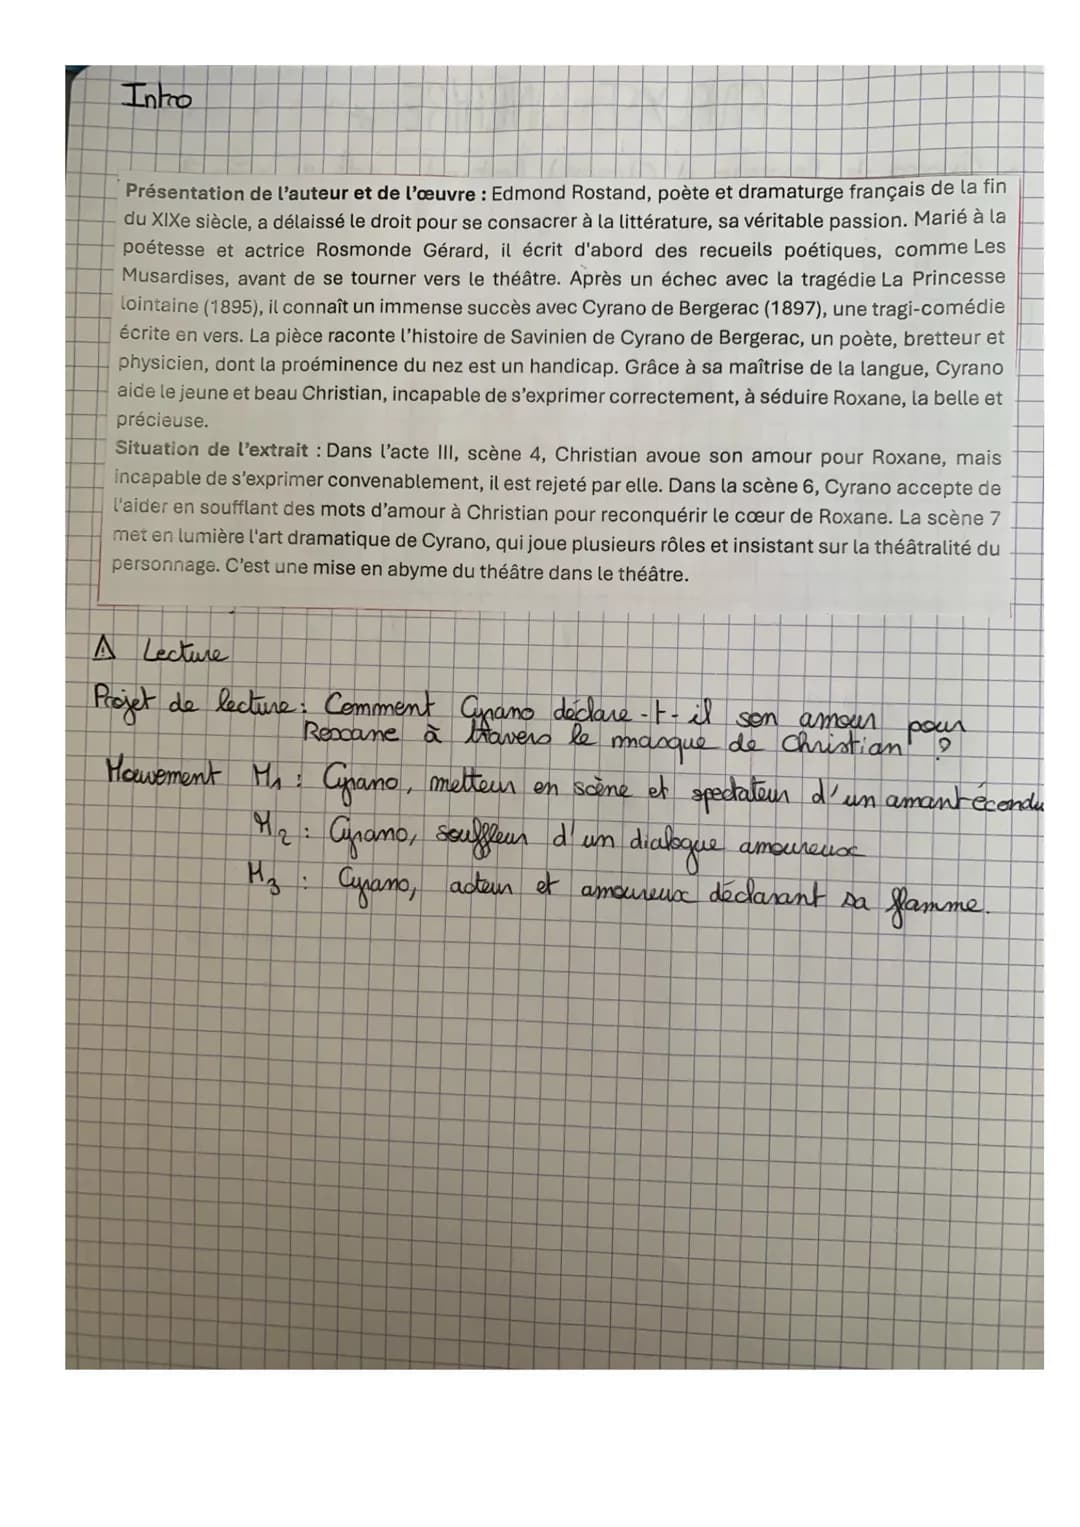 Intro
Présentation de l'auteur et de l'œuvre : Edmond Rostand, poète et dramaturge français de la fin
du XIXe siècle, a délaissé le droit pour se consacrer à la littérature, sa véritable passion. Marié à la
poétesse et actrice Rosmonde Gérard, il écrit d'abord des recueils poétiques, comme Les
Musardises, avant de se tourner vers le théâtre. Après un échec avec la tragédie La Princesse
lointaine (1895), il connaît un immense succès avec Cyrano de Bergerac (1897), une tragi-comédie
écrite en vers. La pièce raconte l'histoire de Savinien de Cyrano de Bergerac, un poète, bretteur et
physicien, dont la proéminence du nez est un handicap. Grâce à sa maîtrise de la langue, Cyrano
aide le jeune et beau Christian, incapable de s'exprimer correctement, à séduire Roxane, la belle et
précieuse.
Situation de l'extrait : Dans l'acte III, scène 4, Christian avoue son amour pour Roxane, mais
incapable de s'exprimer convenablement, il est rejeté par elle. Dans la scène 6, Cyrano accepte de
l'aider en soufflant des mots d'amour à Christian pour reconquérir le cœur de Roxane. La scène 7
met en lumière l'art dramatique de Cyrano, qui joue plusieurs rôles et insistant sur la théâtralité du
personnage. C'est une mise en abyme du théâtre dans le théâtre.
⚠ Lecture
Projet de lecture : Comment Cyrano déclare-t-il son amour pour
Roxane à travers le masque de Christian ?
Mouvement M1 : Cyrano, metteur en scène et spectateur d'un amant écondu
M2 : Cyrano, souffleur d'un dialogue amoureux
M3 : Cyrano, acteur et amoureux déclarant sa flamme.